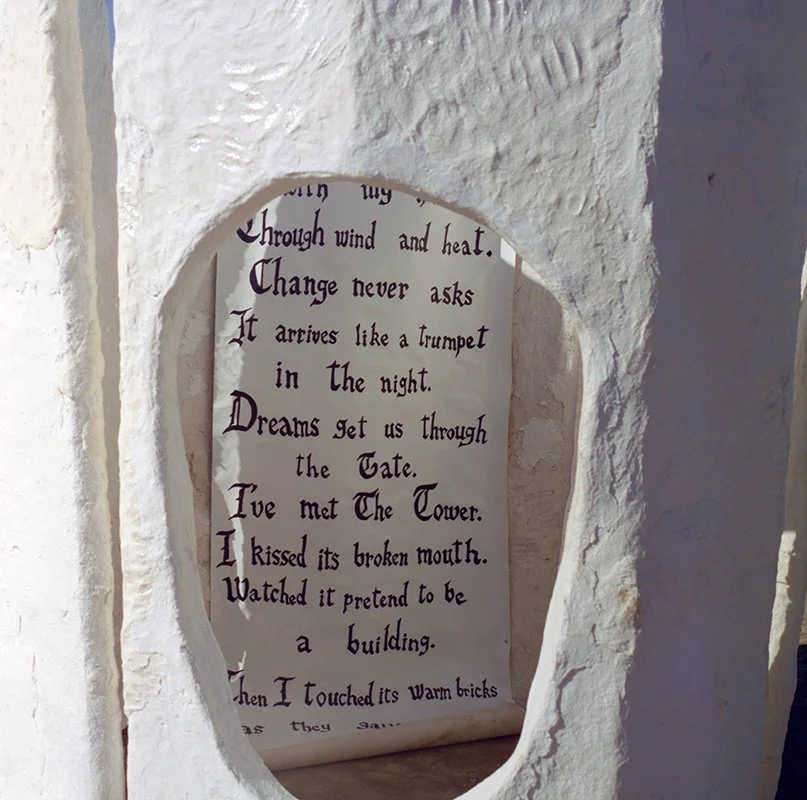 with my
Through wind and heat.
Change never asks
It arrives like a trumpet
in the night.
Dreams get us through
the Gate.
I've met The Tower.
I kissed its broken mouth.
Watched it pretend to be
a building.
Then I touched its warm bricks
as they